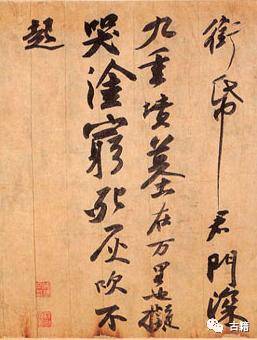 銜帋君門深
九重墳墓在万里也擬
哭塗窮死灰吹不
起
古籍